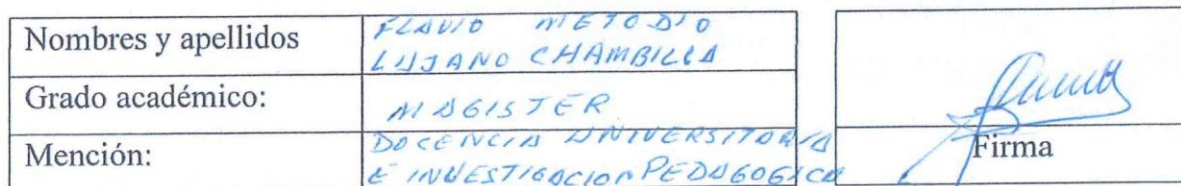 Nombres y apellidos
FLAVIO METODIO
LUJANO CHAMBILLA
Grado académico:
MAGISTER
Mención:
DOCENCIA UNIVERSITARIA
E INVESTIGACION PEDAGOGICA
Firma